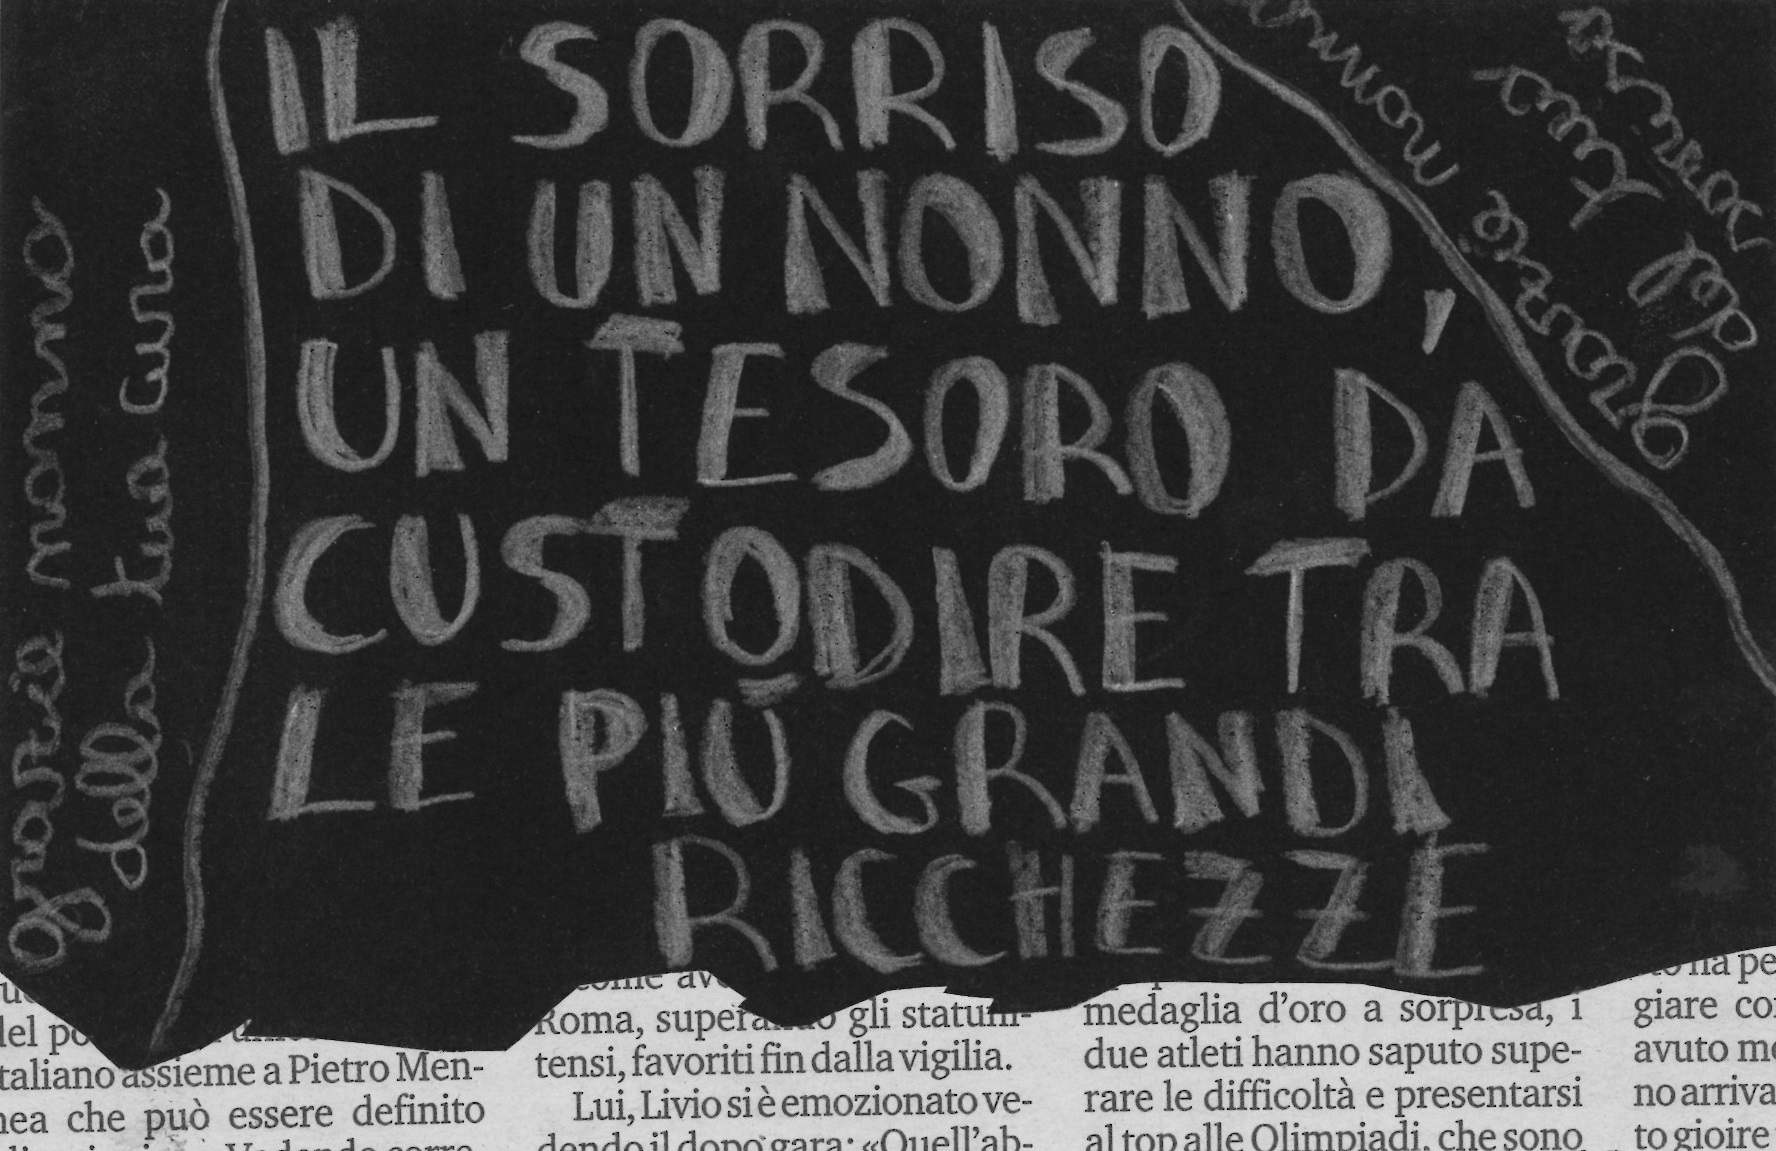 grazie nonno
della tua cura
IL SORRISO
DI UN NONNO,
UN TESORO DA
CUSTODIRE TRA
LE PIÙ GRANDI
RICCHEZZE
grazie nonno
del tuo
sorriso
del
taliano assieme a Pietro Men-
nea che può essere definito
Vedendo corre-
come
Roma, superando gli statuni-
tensi, favoriti fin dalla vigilia.
Lui, Livio si è emozionato ve-
dendo il dopo gara: «Quell'ab-
medaglia d'oro a sorpresa, i
due atleti hanno saputo supe-
rare le difficoltà e presentarsi
al top alle Olimpiadi, che sono
ha pe
giare co
avuto m
no arriva
to gioire